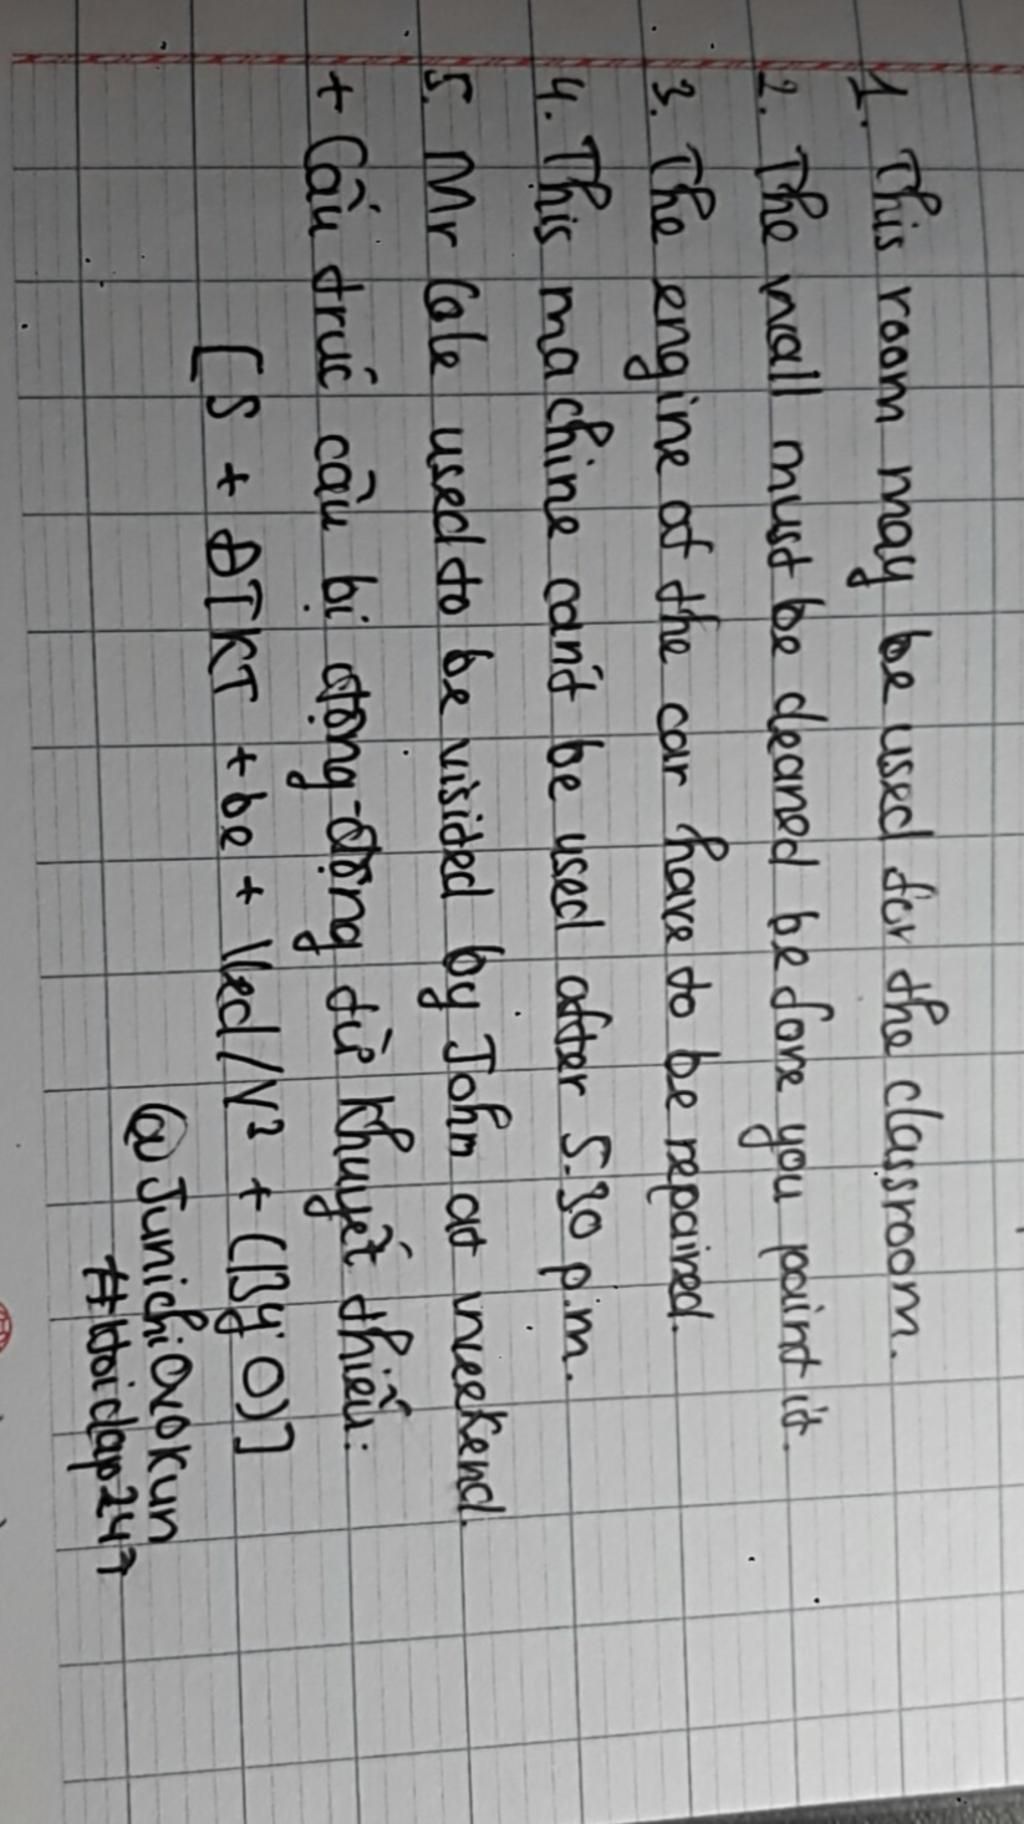 1. This room may be used for the classroom.
2. The wall must be cleaned before you paint it.
3. The engine of the car have to be repaired.
4. This machine can't be used after 5.30 p.m.
5. Mr Cole used to be visided by John at weekend.
+ Cấu trúc câu bị động-động từ khuyết thiếu:
[S + ĐTKT + be + Ved/V² + (By O)]
@JunichiOvOkun
#Hoidap247